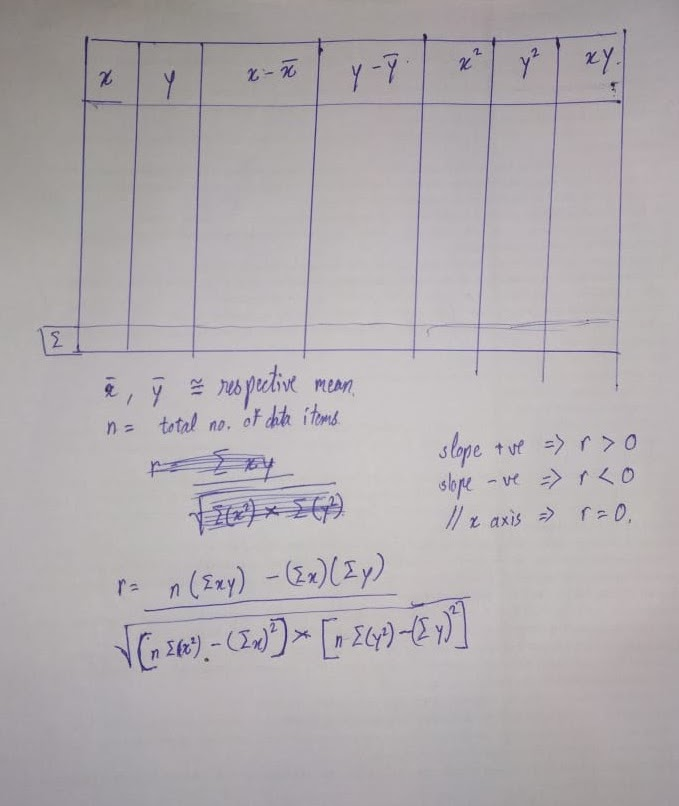 x y x - x̄ y - ȳ x² y² xy.
Σ
x̄, ȳ ≅ respective mean.
n = total no. of data items.
r = Σ xy
√Σ(x²) × Σ(y²)
slope +ve => r > 0
slope -ve => r < 0
// x axis => r = 0.
r = n(Σxy) - (Σx)(Σy)
√[n Σ(x²) - (Σx)²] × [n Σ(y²) - (Σy)²]